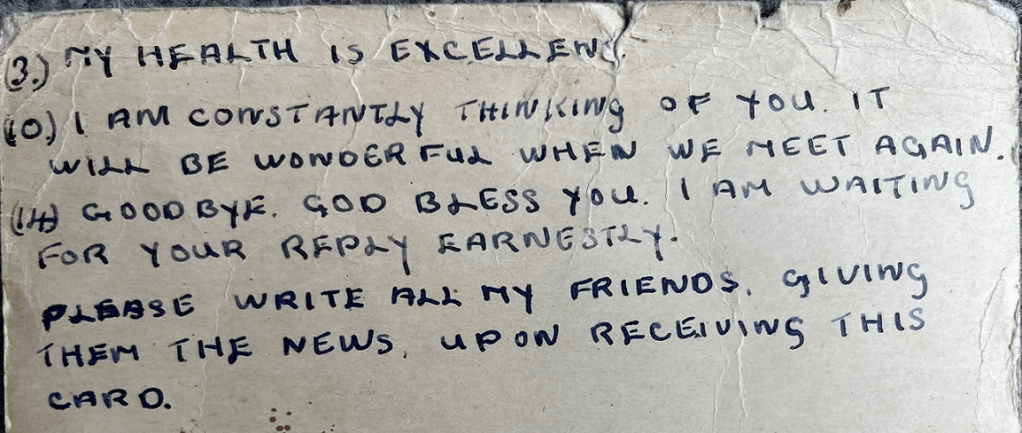 (3.) MY HEALTH IS EXCELLENT
(10.) I AM CONSTANTLY THINKING OF YOU. IT
WILL BE WONDERFUL WHEN WE MEET AGAIN.
(14) GOODBYE. GOD BLESS YOU. I AM WAITING
FOR YOUR REPLY EARNESTLY.
PLEASE WRITE ALL MY FRIENDS, GIVING
THEM THE NEWS, UPON RECEIVING THIS
CARD.